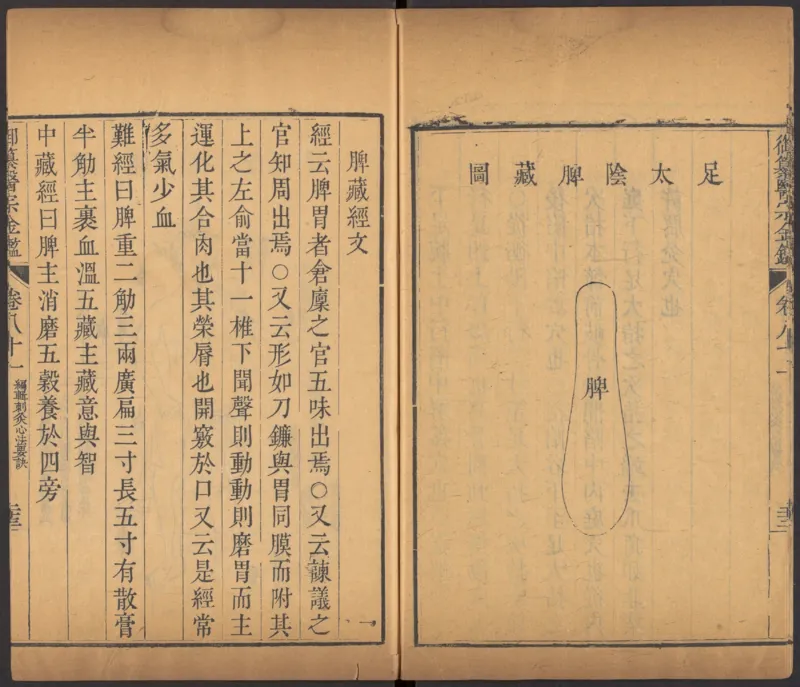 御纂醫宗金鑑
卷八十一
足太陰脾藏圖
脾
脾藏經文
經云脾胃者倉廩之官五味出焉○又云諫議之
官知周出焉○又云形如刀鐮與胃同膜而附其
上之左俞當十一椎下聞聲則動動則磨胃而主
運化其合肉也其榮脣也開竅於口又云是經常
多氣少血
難經曰脾重二觔三兩廣扁三寸長五寸有散膏
半觔主裹血溫五藏主藏意與智
中藏經曰脾主消磨五穀養於四旁
御纂醫宗金鑑
卷八十一
編輯刺灸心法要訣